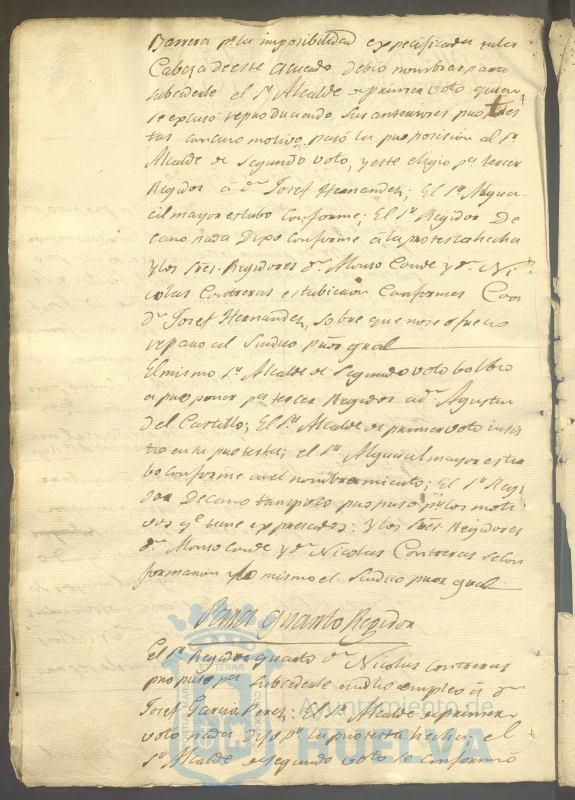 Barrera pr. la imposibilidad expecificada en la
Cabeza de este acuerdo debio nombrar para
subcederle el Sr. Alcalde de primer voto quien
se excusó reproduciendo sus anteriores protes
tas con cuio motivo pasó la proposición al Sr.
Alcalde de Segundo voto, y este eligio pa. tercer
Regidor á Dn. Josef Hernandez; El Sr. Algua-
cil mayor estubo conforme; El Sr. Regidor De
cano nada Dijo conforme á la protesta hecha
y los Sres. Regidores Dn. Alonso Conde y Dn. Ni
colas Contreras estubieron Conformes Con
Dn. Josef Hernandez, sobre que no se ofrecio
reparo al Sindico Pror. gral
El mismo Sr. Alcalde de Segundo voto bolbio
a proponer pa. tercer Regidor a Dn. Agustin
del Castillo; El Sr. Alcalde de primer voto insis
tio en su protesta; el Sr. Alguacil mayor estu
bo conforme en el nombramiento; El Sr. Regi
dor Decano tampoco propuso pr. los moti
vos qe. tiene expresados: y los Sres. Regidores
Dn. Alonso Conde y Dn. Nicolas Contreras se con
formaron y lo mismo el Sindico Pror. gral
Para Quarto Regidor
El Sr. Regidor quarto Dn. Nicolas Contreras
propuso pa. subcederle en dho empleo á Dn.
Josef Garcia Perez: El Sr. Alcalde de primer
voto nada dijo pr. la protesta hecha; el
Sr. Alcalde de segundo voto se conformó
Ayuntamiento de
HUELVA